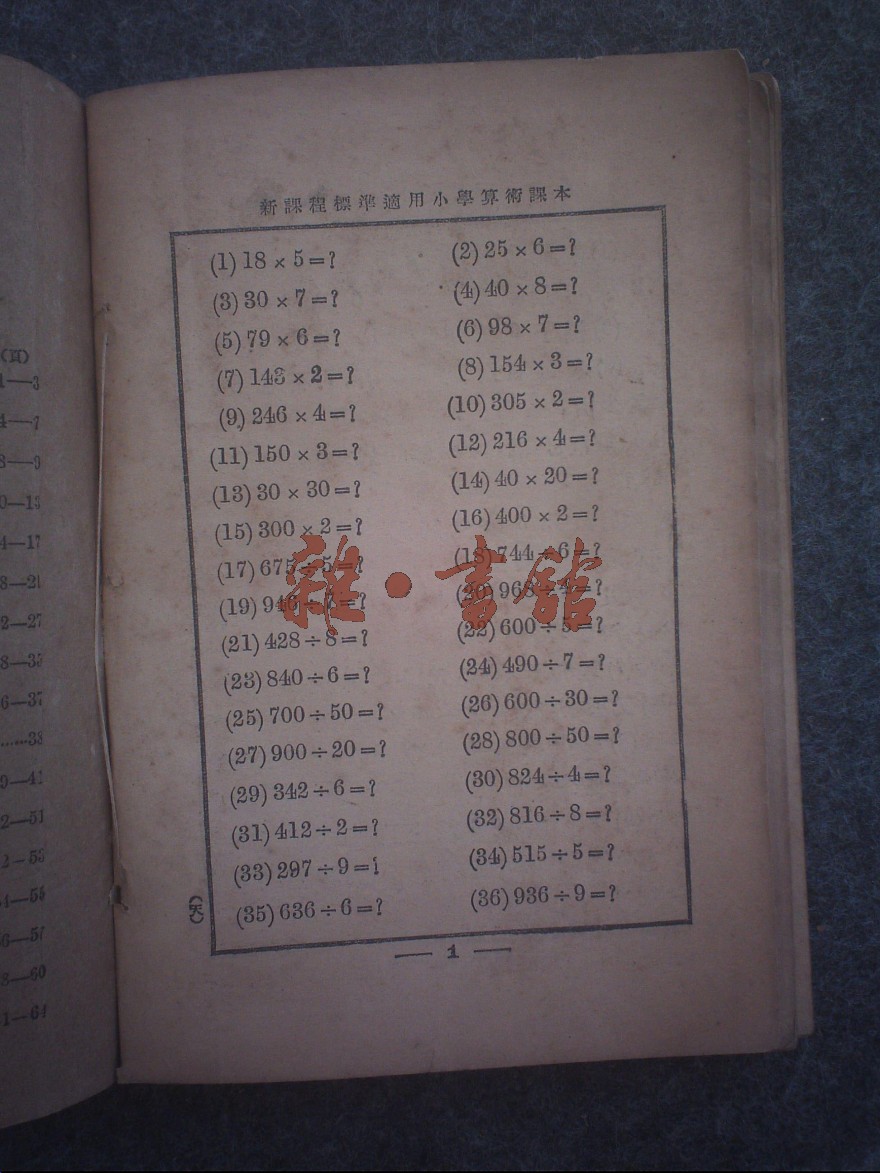 新課程標準適用小學算術課本
(1) 18 × 5 = ? (2) 25 × 6 = ?
(3) 30 × 7 = ? (4) 40 × 8 = ?
(5) 79 × 6 = ? (6) 98 × 7 = ?
(7) 143 × 2 = ? (8) 154 × 3 = ?
(9) 246 × 4 = ? (10) 305 × 2 = ?
(11) 150 × 3 = ? (12) 216 × 4 = ?
(13) 30 × 30 = ? (14) 40 × 20 = ?
(15) 300 × 2 = ? (16) 400 × 2 = ?
(17) 675 ÷ 5 = ? (18) 744 ÷ 6 = ?
(19) 946 ÷ = ? (20) 968 ÷ 4 = ?
(21) 428 ÷ 8 = ? (22) 600 ÷ 5 = ?
(23) 840 ÷ 6 = ? (24) 490 ÷ 7 = ?
(25) 700 ÷ 50 = ? (26) 600 ÷ 30 = ?
(27) 900 ÷ 20 = ? (28) 800 ÷ 50 = ?
(29) 342 ÷ 6 = ? (30) 824 ÷ 4 = ?
(31) 412 ÷ 2 = ? (32) 816 ÷ 8 = ?
(33) 297 ÷ 9 = ? (34) 515 ÷ 5 = ?
(35) 636 ÷ 6 = ? (36) 936 ÷ 9 = ?
(天)
— 1 —
雜·書館
(頁)
1—3
4—7
8—9
0—13
4—17
8—21
2—27
8—35
6—37
……38
9—41
2—51
2—53
4—55
6—57
8—60
1—64